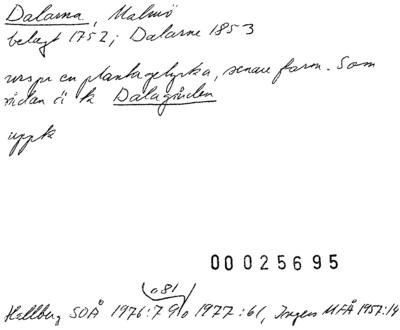 Dalarna, Malmö
belagt 1752; Dalarne 1853
urspr en plantagelycka, senare farm. Som
sådan även k Dalagården
uppk
00025695
081
Hallberg SOÅ 1976:79 o 1977:61, Ingers MFÅ 1957:14